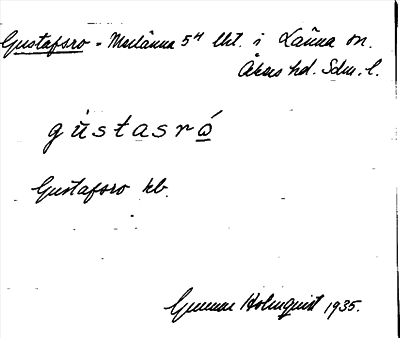 Gustafsro - Marlänna 5⁴ lht. i Länna sn.
Åkers hd. Sdm. l.
gùstasrώ
Gustafsro kb.
Gunnar Holmquist 1935.